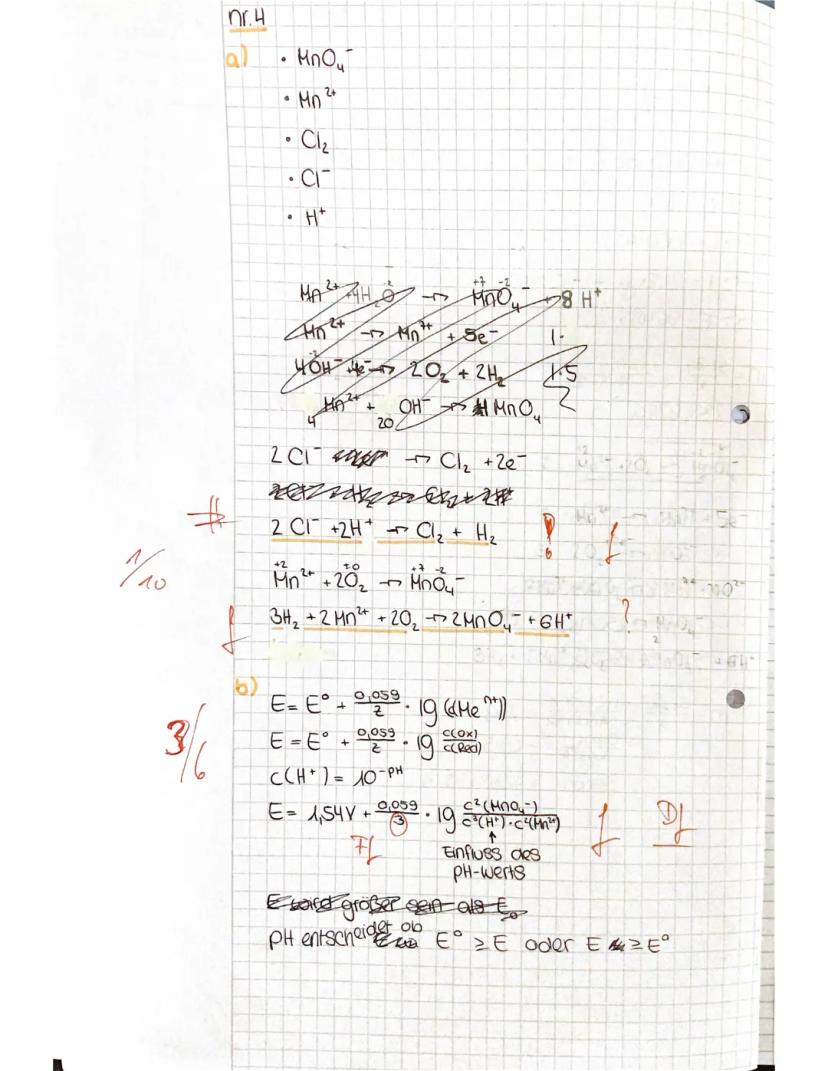 nr.4
a) • MnO₄⁻
• Mn²⁺
• Cl₂
• Cl⁻
• H⁺
Mn²⁺ + 4H₂O → MnO₄⁻ + 8 H⁺
Mn²⁺ → Mn⁷⁺ + 5e⁻ 1·
4OH⁻ → 2O₂ + 2H₂ 1.5
4 Mn²⁺ + 20 OH⁻ → MnO₄
2 Cl⁻ → Cl₂ + 2e⁻
2 Cl⁻ + 2H⁺ → Cl₂ + H₂ ! f
1/10
+2 ±0 +7 -2
Mn²⁺ + 2O₂ → MnO₄⁻
f 3H₂ + 2Mn²⁺ + 2O₂ → 2MnO₄⁻ + 6H⁺ ?
b)
E = E° + 0,059/z · lg (c(Meⁿ⁺))
3/6
E = E° + 0,059/z · lg c(Ox)/c(Red)
c(H⁺) = 10⁻ᵖᴴ
E = 1,54V + 0,059/3 · lg c²(MnO₄⁻)/c³(H⁺)·c⁴(Mn²⁺) f Df
Ff
↑
Einfluss des
pH-Werts
E wird größer sein als E
pH entscheidet ob E° ≥ E oder E ≥ E°